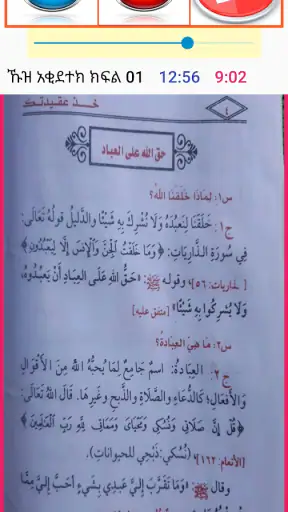 ኹዝ አቂደተክ ክፍል 01 12:56 9:02
خذ عقيدتك
٤
حق الله على العباد
س١: لِمَاذَا خَلَقَنَا اللهُ؟
ج١: خَلَقَنَا لِنَعْبُدَهُ وَلَا نُشْرِكَ بِهِ شَيْئًا وَالدَّلِيلُ قولُهُ تَعَالَى:
فِي سُورَةِ الذَّارِيَاتِ: ﴿وَمَا خَلَقْتُ الْجِنَّ وَالْإِنْسَ إِلَّا لِيَعْبُدُونِ﴾
[ذاريات: ٥٦] وقوله ﷺ: «حَقُّ اللهِ عَلَى العِبَادِ أَنْ يَعْبُدُوهُ،
وَلَا يُشْرِكُوا بِهِ شَيْئًا» [متفق عليه]
س٢: مَا هِيَ العِبَادَةُ؟
ج٢: العِبَادَةُ: اسمٌ جَامِعٌ لِمَا يُحِبُّهُ اللهُ مِنَ الْأَقْوَالِ
وَالْأَفْعَالِ؛ كَالدُّعَاءِ وَالصَّلَاةِ وَالذَّبحِ وغَيرِهَا. قَالَ اللهُ تَعَالَى:
﴿قُلْ إِنَّ صَلَاتِي وَنُسُكِي وَمَحْيَايَ وَمَمَاتِي لِلَّهِ رَبِّ الْعَالَمِينَ﴾
[الأنعام: ١٦٢] (نُسُكي: ذَبْحِي للحيوانات).
وقال ﷺ: «وَمَا تَقَرَّبَ إِلَيَّ عَبدِي بِشَيْءٍ أَحَبَّ إِلَيَّ مِمَّا